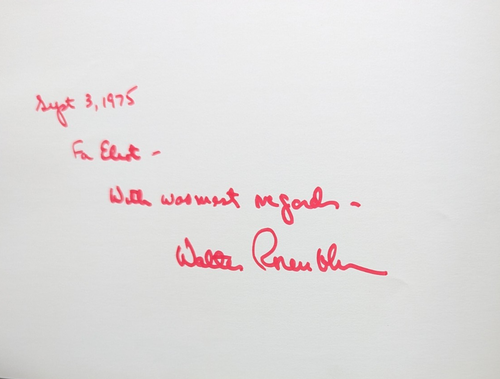 Sept 3, 1975
For Eliot -
With warmest regards -
Walter Rosenblum